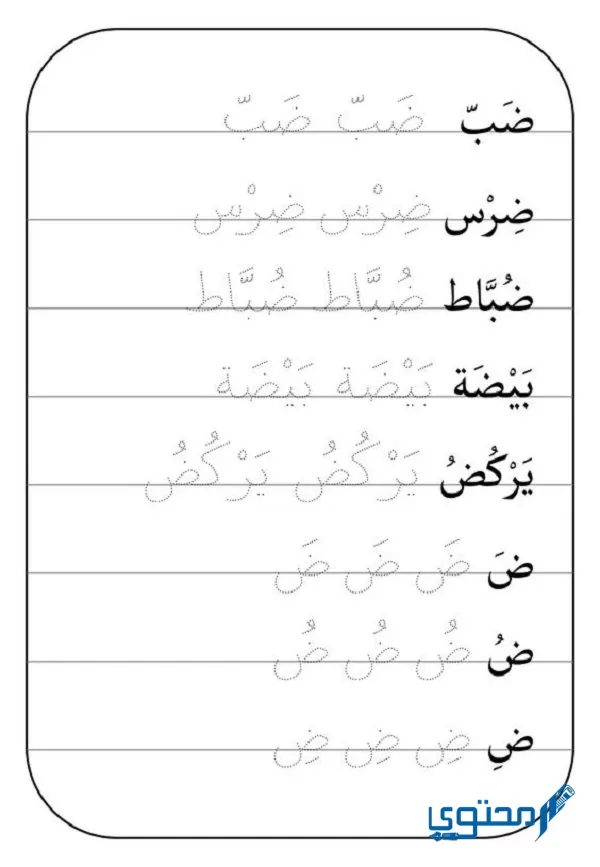 ضَبّ ضَبّ ضَبّ
ضِرْس ضِرْس ضِرْس
ضُبَّاط ضُبَّاط ضُبَّاط
بَيْضَة بَيْضَة بَيْضَة
يَرْكُضُ يَرْكُضُ يَرْكُضُ
ضَ ضَ ضَ ضَ
ضُ ضُ ضُ ضُ
ضِ ضِ ضِ ضِ
محتوى